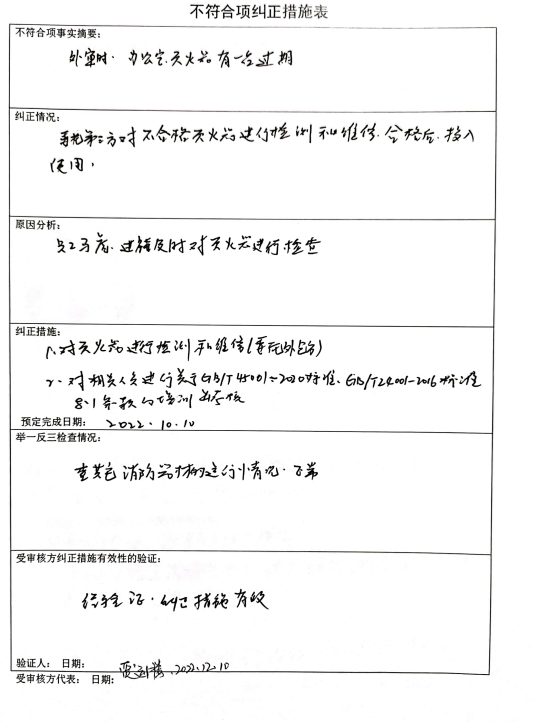 不符合项纠正措施表
不符合项事实摘要:
外审时,办公室灭火器有一台过期
纠正情况:
委托第三方对不合格灭火器进行检测和维修,合格后,投入
使用。
原因分析:
员工马虎,进错及时对灭火器进行检查
纠正措施:
1、对灭火器进行检测和维修(委托外包方)
2、对相关人员进行关于GB/T45001-2020标准、GB/T24001-2016标准
8.1条款的培训
预定完成日期: 2022.10.10
举一反三检查情况:
查其它消防器材的运行情况,正常
受审核方纠正措施有效性的验证:
经验证,纠正措施有效
验证人: 日期: 2022.12.10
受审核方代表: 日期: